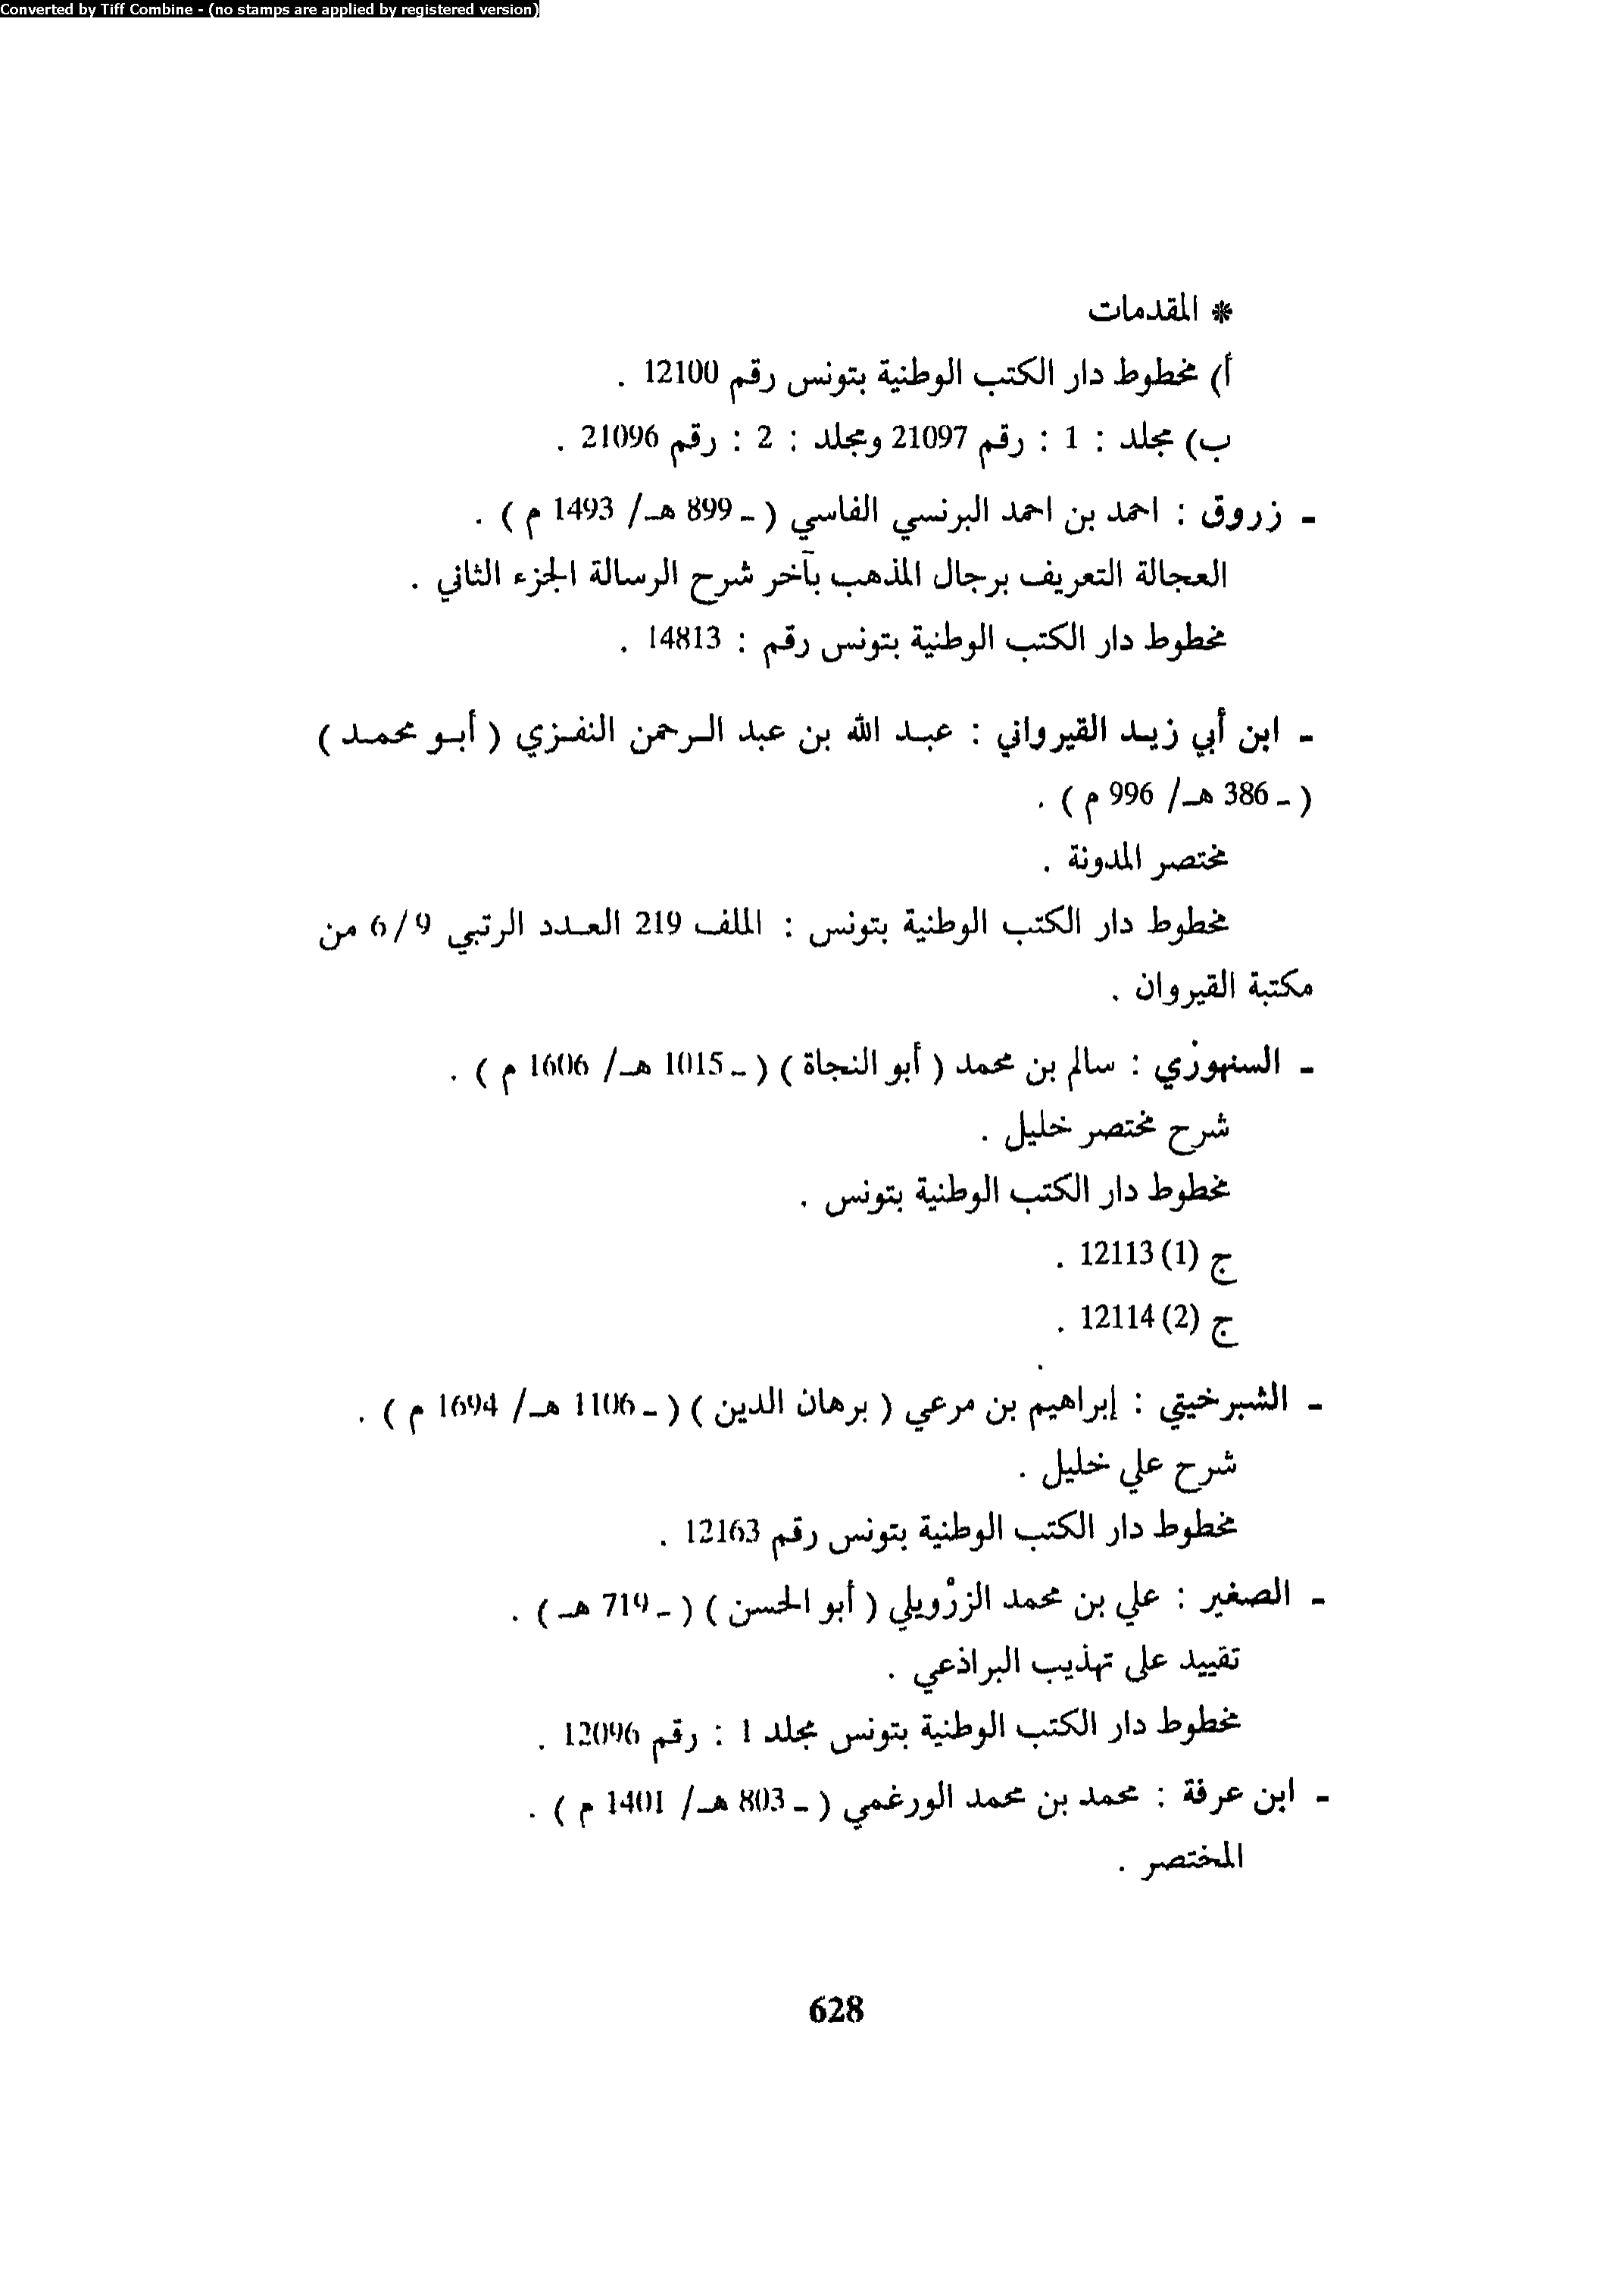 Converted by Tiff Combine - (no stamps are applied by registered version)
* المقدمات
أ) مخطوط دار الكتب الوطنية بتونس رقم 12100 .
ب) مجلد : 1 : رقم 21097 ومجلد : 2 : رقم 21096 .
- زروق : احمد بن احمد البرنسي الفاسي ( ـ 899 هـ/ 1493 م ) .
العجالة التعريف برجال المذهب بآخر شرح الرسالة الجزء الثاني .
مخطوط دار الكتب الوطنية بتونس رقم : 14813 .
- ابن أبي زيـد القيرواني : عبـد الله بن عبد الـرحمن النفـزي ( أبـو محمـد )
( ـ 386 هـ/ 996 م ) .
مختصر المدونة .
مخطوط دار الكتب الوطنية بتونس : الملف 219 العـدد الرتبي 6/9 من
مكتبة القيروان .
- السنهوزي : سالم بن محمد ( أبو النجاة ) ( ـ 1015 هـ/ 1606 م ) .
شرح مختصر خليل .
مخطوط دار الكتب الوطنية بتونس .
ج (1) 12113 .
ج (2) 12114 .
- الشبرخيتي : إبراهيم بن مرعي ( برهان الدين ) ( ـ 1106 هـ/ 1694 م ) .
شرح علي خليل .
مخطوط دار الكتب الوطنية بتونس رقم 12163 .
- الصغير : علي بن محمد الزرْويلي ( أبو الحسن ) ( ـ 719 هـ ) .
تقييد على تهذيب البراذعي .
مخطوط دار الكتب الوطنية بتونس مجلد 1 : رقم 12096 .
- ابن عرفة : محمد بن محمد الورغمي ( ـ 803 هـ/ 1401 م ) .
المختصر .
628